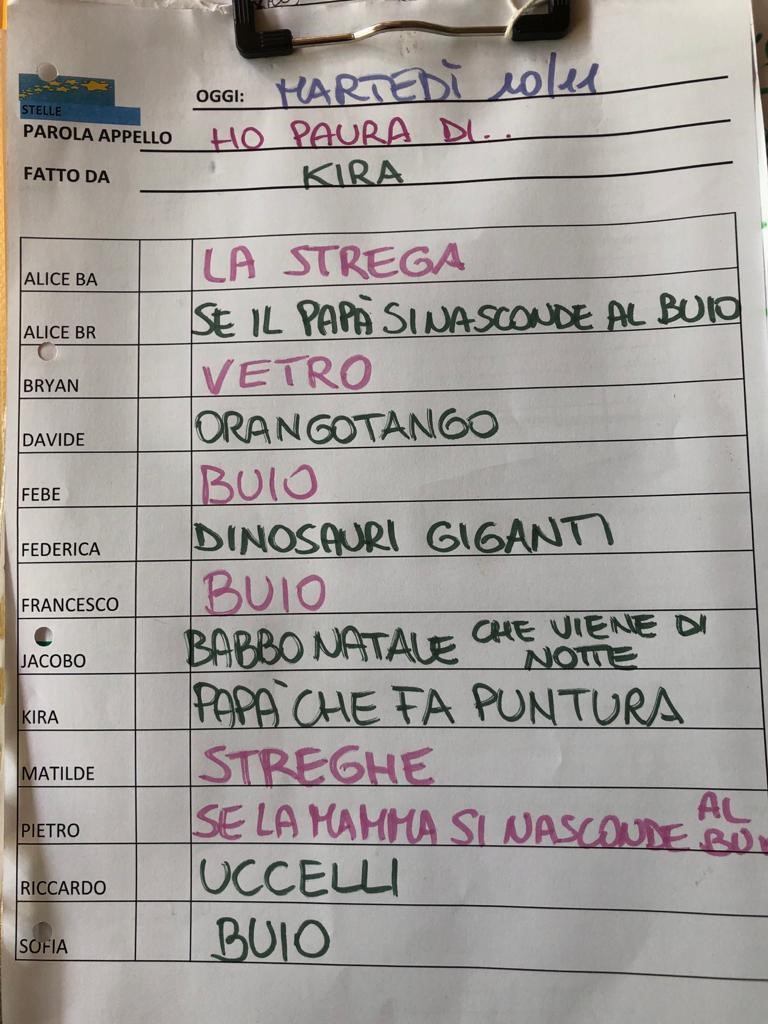 STELLE
OGGI: MARTEDÌ 10/11
PAROLA APPELLO HO PAURA DI..
FATTO DA KIRA
ALICE BA LA STREGA
ALICE BR SE IL PAPÀ SI NASCONDE AL BUIO
BRYAN VETRO
DAVIDE ORANGOTANGO
FEBE BUIO
FEDERICA DINOSAURI GIGANTI
FRANCESCO BUIO
JACOBO BABBO NATALE CHE VIENE DI NOTTE
KIRA PAPÀ CHE FA PUNTURA
MATILDE STREGHE
PIETRO SE LA MAMMA SI NASCONDE AL BUI
RICCARDO UCCELLI
SOFIA BUIO